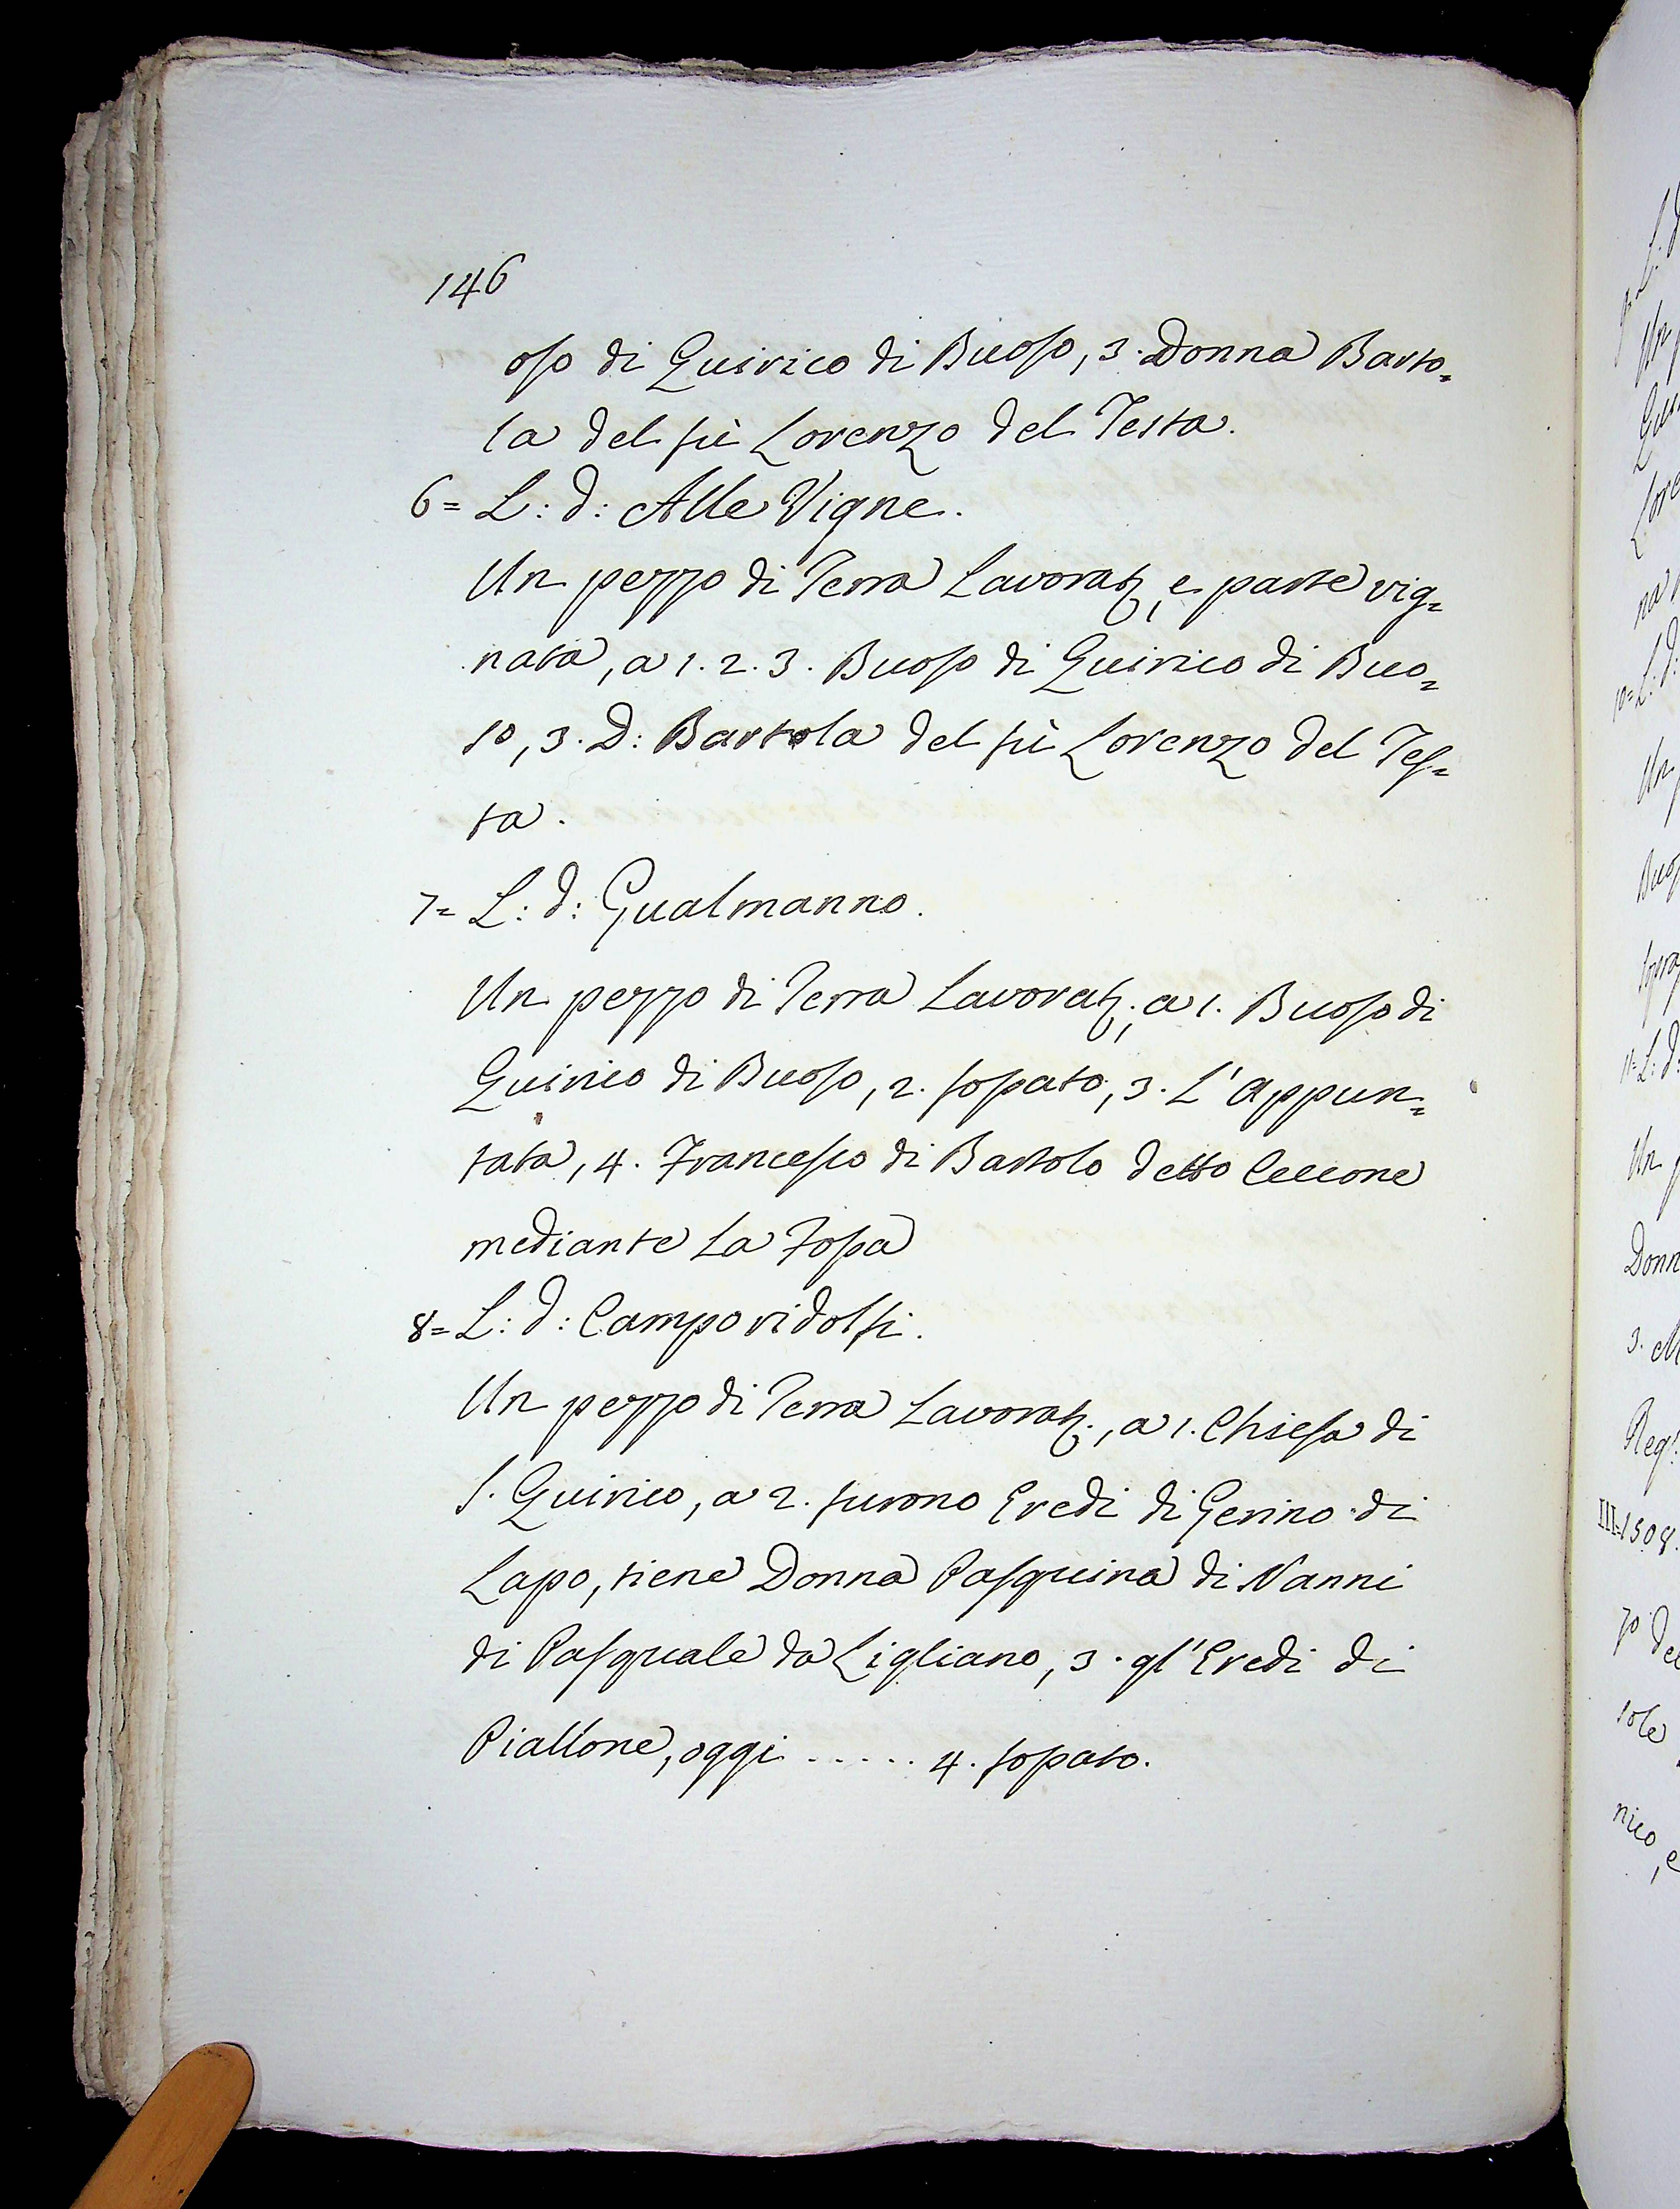 146
oso di Quirico di Buoso, 3. Donna Barto=
la del fù Lorenzo del Testa.
6= L: d: Alle Vigne.
Un pezzo di Terra Lavorat:, e parte vig=
nata, a 1. 2. 3. Buoso di Quirico di Buo=
so, 3. D: Bartola del fù Lorenzo del Tes=
ta.
7= L: d: Gualmanno.
Un pezzo di Terra Lavorat:, a 1. Buoso di
Quirico di Buoso, 2. fossato, 3. L'Appun=
tata, 4. Francesco di Bartolo detto Ceccone
mediante La Fossa
8= L: d: Camporidolfi.
Un pezzo di Terra Lavorat:, a 1. Chiesa di
S. Quirico, a 2. furono Eredi di Gerino di
Lapo, tiene Donna Pasquina di Nanni
di Pasquale da Ligliano, 3. gl'Eredi di
Piallone, oggi ..... 4. fossato.